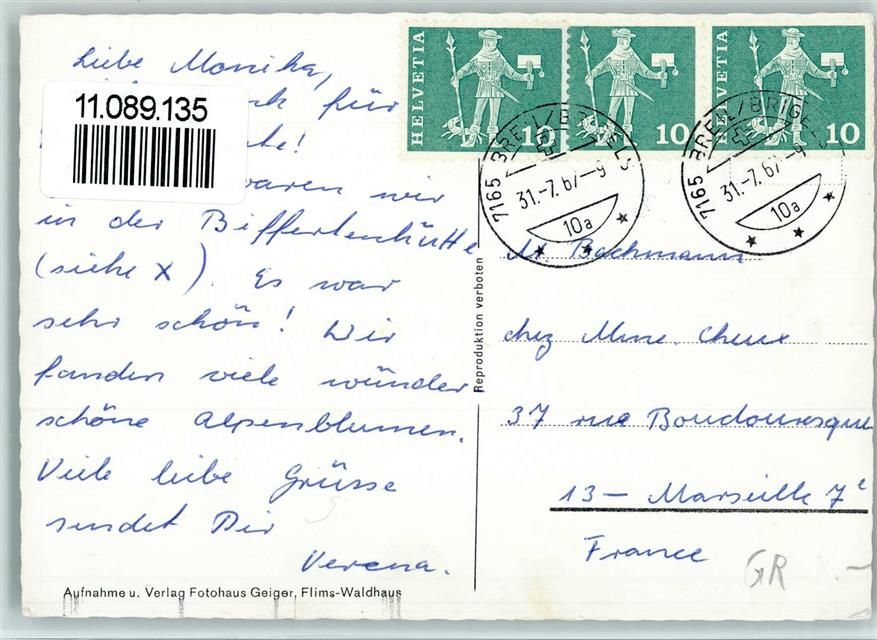 Liebe Monika,
11.089.135
für
waren wir
in der Bifertenhütte
(siehe X). Es war
sehr schön! Wir
fanden viele wunder
schöne Alpenblumen.
Viele liebe Grüsse
sendet Dir
Verena.
Aufnahme u. Verlag Fotohaus Geiger, Flims-Waldhaus
Reproduktion verboten
HELVETIA 10
HELVETIA 10
HELVETIA 10
7165 BREIL/BRIGELS
31.-7.67-9
10a
7165 BREIL/BRIGELS
31.-7.67-9
10a
M. Bachmann
chez Mme. Cheux
37 rue Boudouresque
13 - Marseille 7e
France
GR